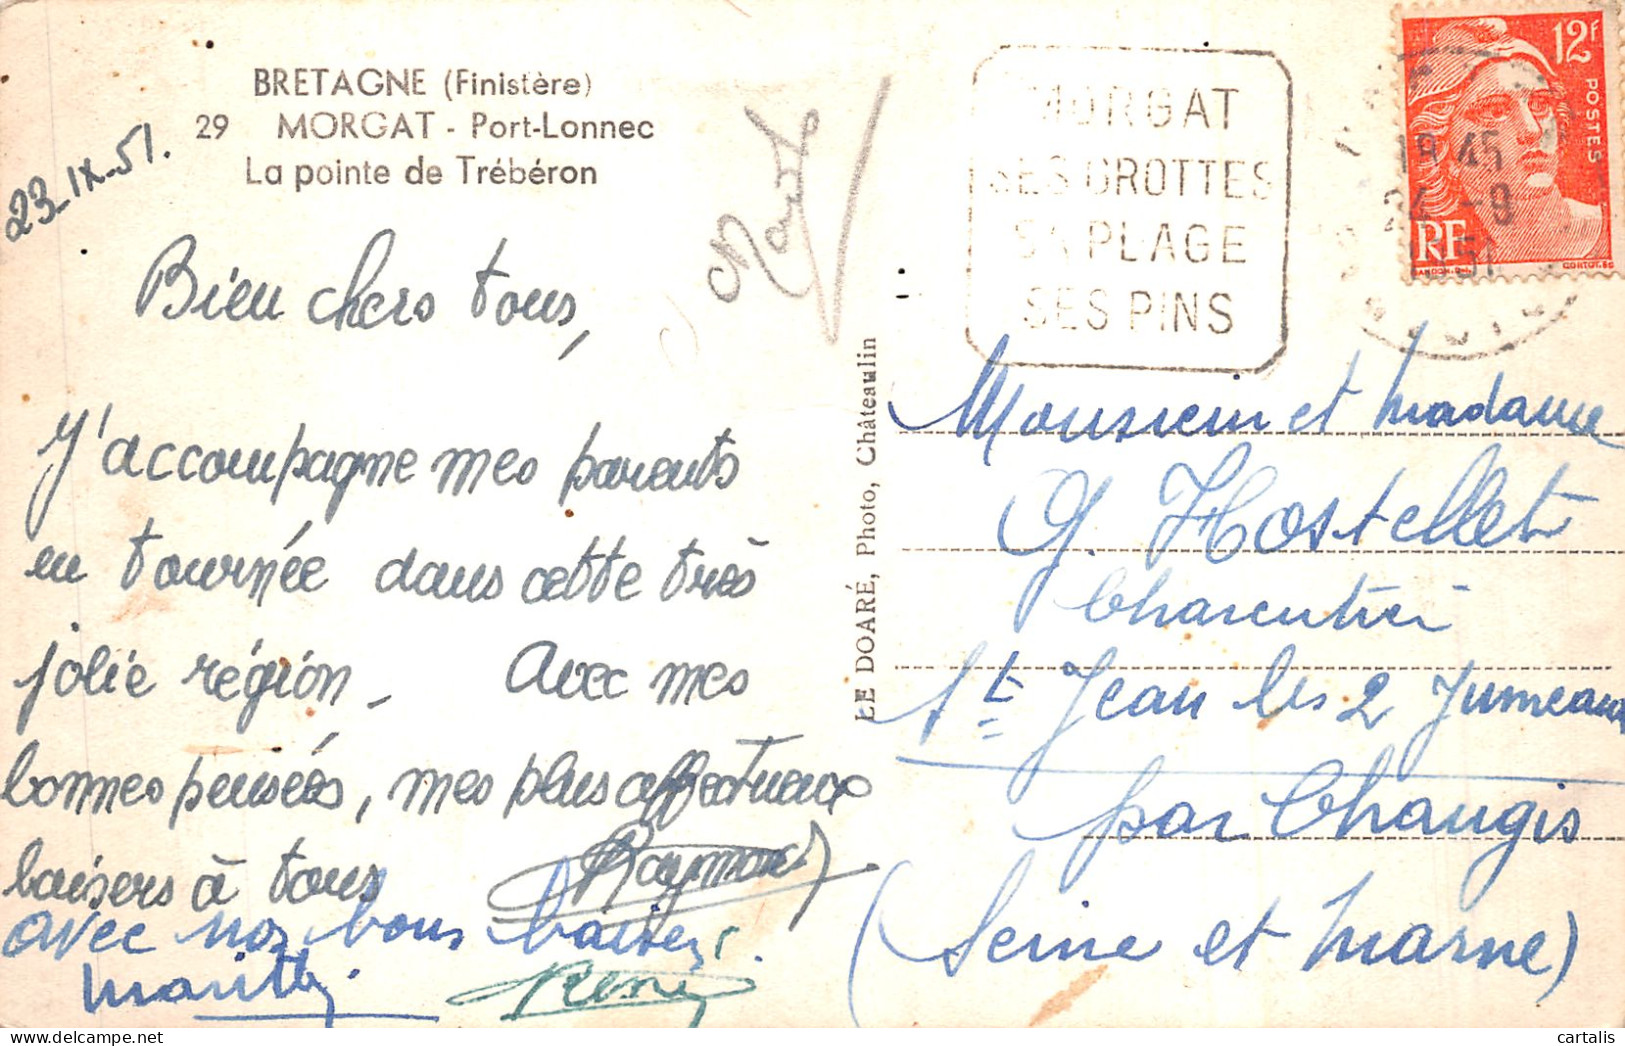 BRETAGNE (Finistère)
29 MORGAT - Port-Lonnec
La pointe de Trébéron
23_IX_51.
Bien chers tous,
J'accompagne mes parents
en tournée dans cette très
jolie région_ Avec mes
bonnes pensées, mes plus affectueux
baisers à tous Raymond
avec nos bons baisers.
René
LE DOARÉ, Photo, Châteaulin
MORGAT
SES GROTTES
SA PLAGE
SES PINS
12F
POSTES
RF
GANDON.D.
CORTOT.SC
18 45
24 -9
1951
Monsieur et madame
G. Hostellet
Charentier
St Jean les 2 Jumeaux
par Changis
(Seine et Marne)
cartalis